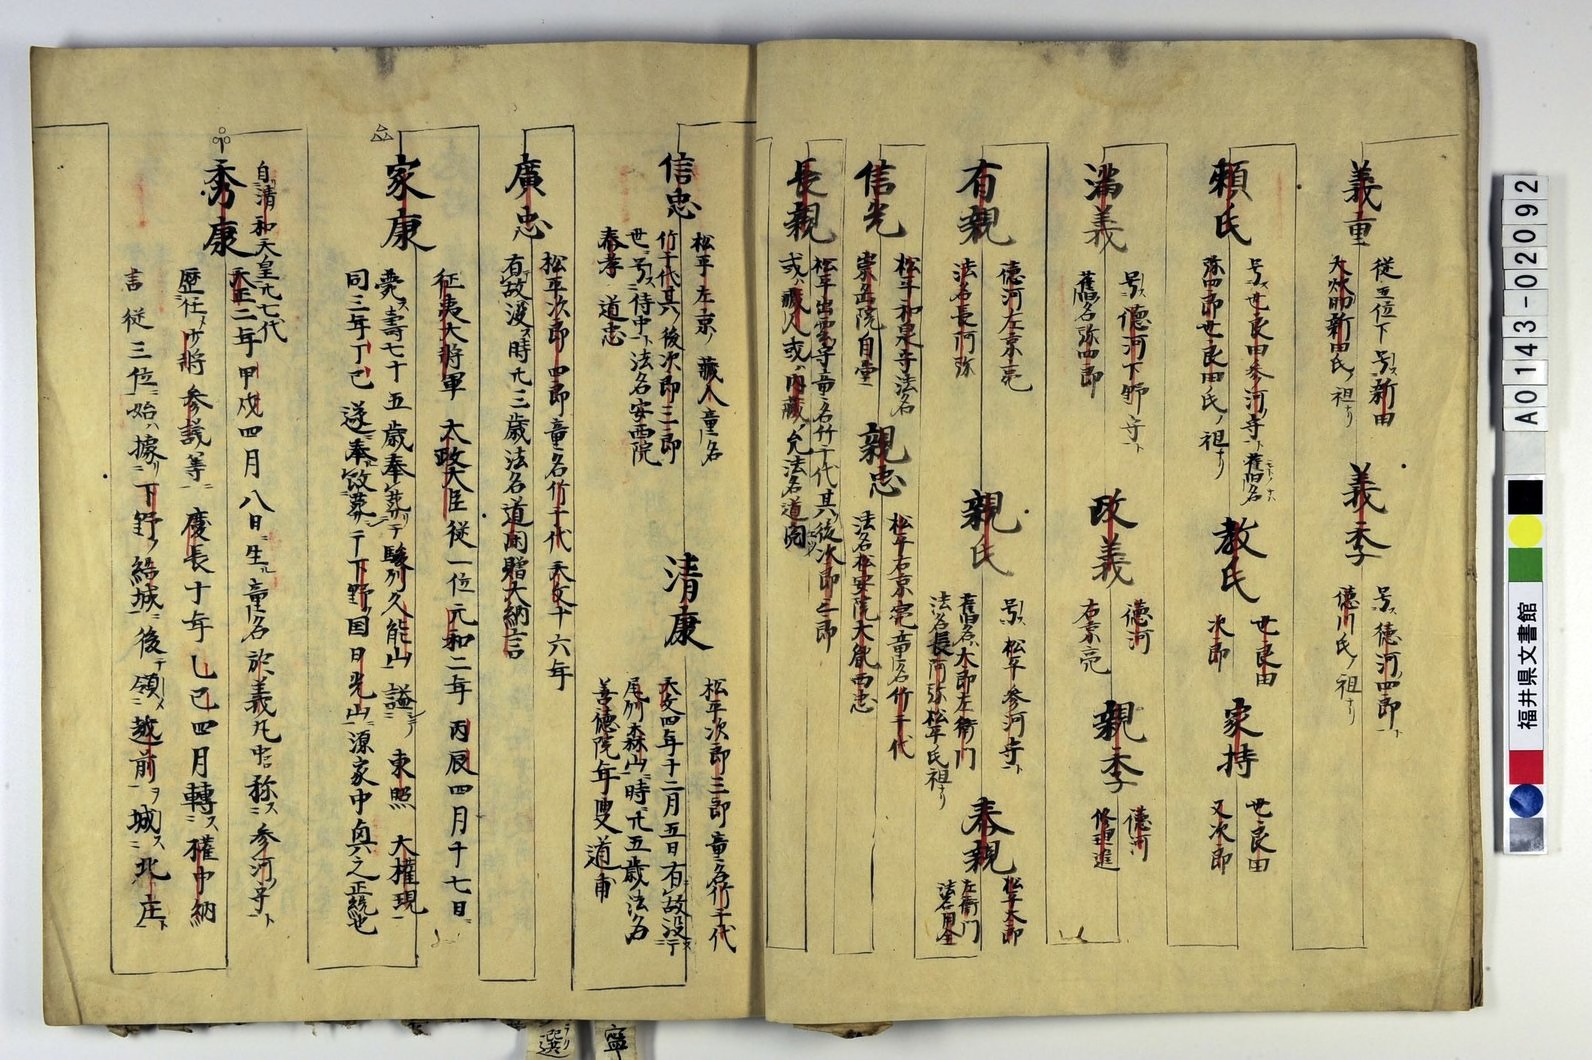 義重
従五位下号ス新田
大炊助新田氏ノ祖ナリ
義季
号ス徳河四郎ト
徳川氏ノ祖ナリ
頼氏
号ス世良田参河守ト舊名
弥四郎世良田氏ノ祖ナリ
教氏
世良田
次郎
家持
世良田
又次郎
満義
号ス徳河下野守ト
舊名弥四郎
政義
徳河
右京亮
親季
徳河
修理進
有親
徳河左京亮
法名長阿弥
親氏
号ス松平参河守ト
舊名太郎左衛門
法名長阿弥松平氏祖ナリ
泰親
松平太郎
左衛門
法名用金
信光
松平和泉守法名
崇岳院自堂
親忠
松平右京亮童名竹千代
法名松安院大胤西忠
長親
松平出雲守童名竹千代其後次郎三郎
或ハ蔵人或ハ内蔵允法名道閲
信忠
松平左京ノ蔵人童名
竹千代其ノ後次郎三郎
世ニ号ス侍中ト法名安西院
春孝道忠
清康
松平次郎三郎童名竹千代
天文四年十二月五日有故没于
尾州森山時ニ廿五歳法名
善徳院年叟道甫
廣忠
松平次郎四郎童名竹千代天文十六年
有故没ス時ニ廿三歳法名道閑贈大納言
家康
征夷大将軍太政大臣従一位元和二年丙辰四月十七日ニ
薨ス寿七十五歳奉葬于駿州久能山謚シテ東照大權現ト
同三年丁巳遂ニ奉改葬于下野国日光山ニ源家中興之正統也
自清和天皇廿七代
秀康
天正二年甲戌四月八日ニ生ル童名於義丸ト称ス参河ノ守ト
歴任少将参議等ニ慶長十年乙巳四月轉ス權中納
言従三位ニ始ハ據リ下野ノ結城ニ後領シテ越前ヲ城ス北庄ニ
選
寧
A0143-02092
福井県文書館